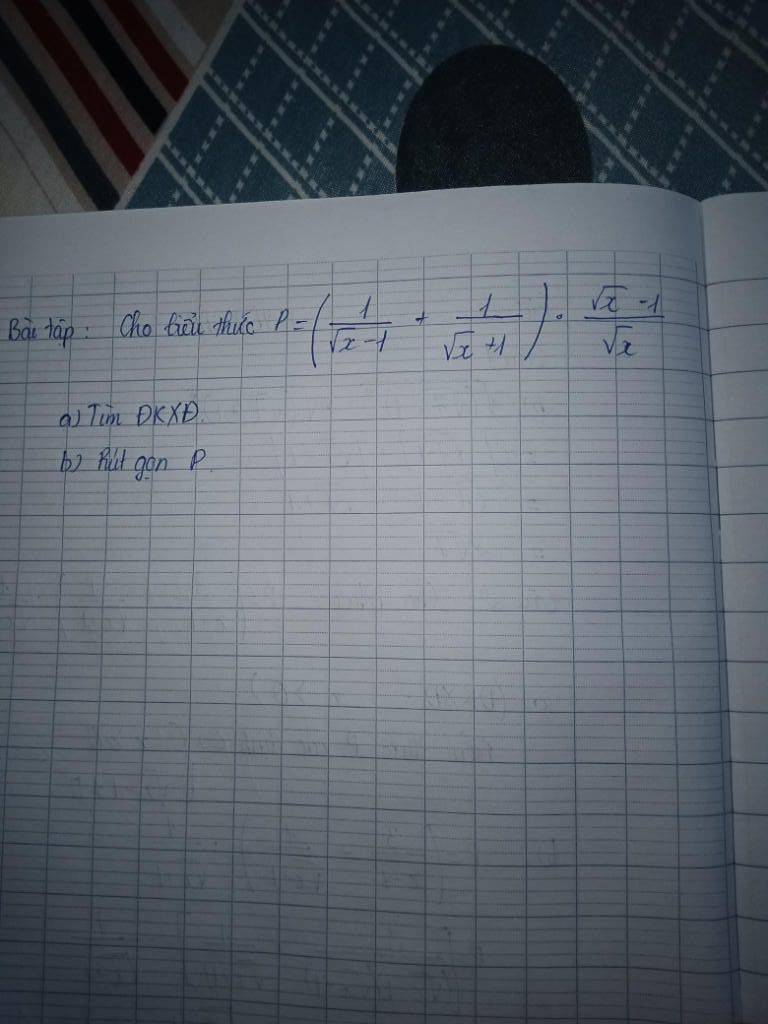 Bài tập: Cho biểu thức P = ( 1/(√x - 1) + 1/(√x + 1) ) . (√x - 1)/√x
a) Tìm ĐKXĐ.
b) Rút gọn P.